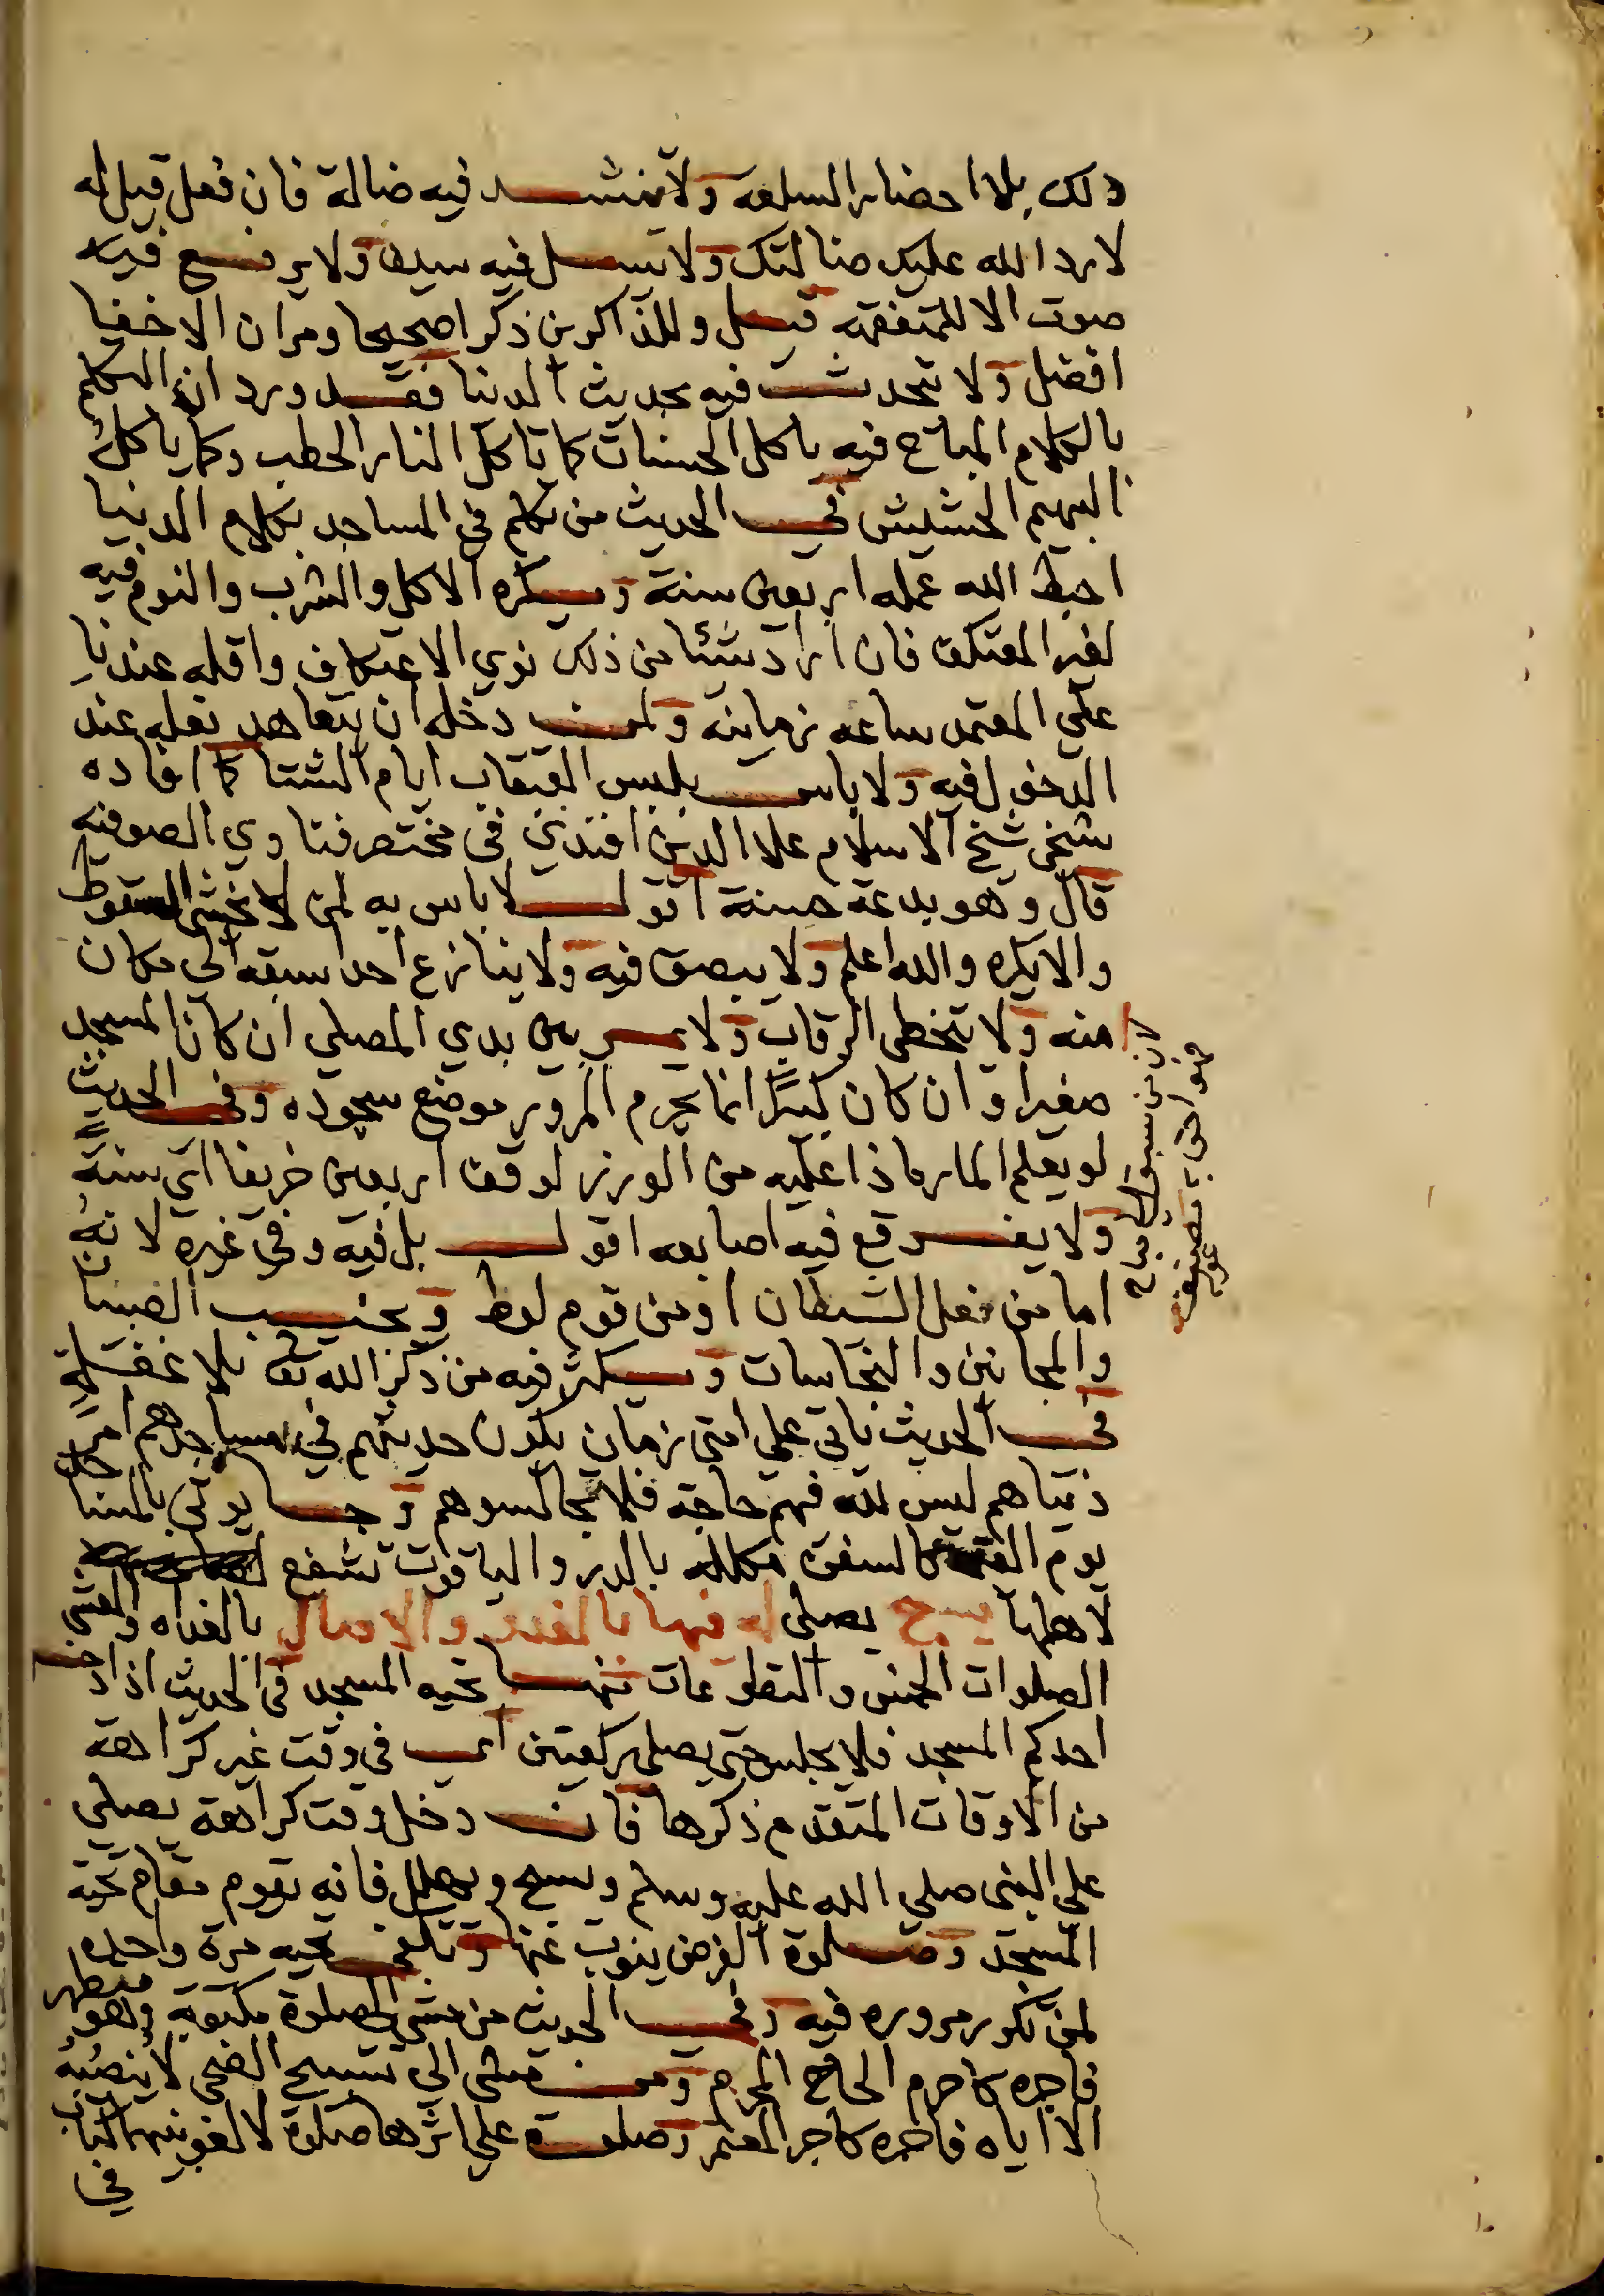 ذلك بلا احضار السلعه ولا ينشد فيه ضالة فان فعل قيل له
لا رد الله عليك ضالتك ولا يسل فيه سيفا ولا يرفع فيه
صوت الا للمتفقهه قيل وللذاكرين ذكرا صحيحا ومر ان الاخفيا
افضل ولا يتحدث فيه بحديث الدنيا فقد ورد ان التكلم
بالكلام المباح فيه ياكل الحسنات كما تاكل النار الحطب وكما ياكل
البهيم الحشيش في الحديث من تكلم في المساجد بكلام الدنيا
احبط الله عمله اربعين سنة ويكره الاكل والشرب والنوم فيه
لغير المعتكف فان اراد شيئا من ذلك نوي الاعتكاف واقله عندنا
علي المعتمد ساعه زمانيه ولمن دخله ان يتعاهد نعله عند
الدخول فيه ولا باس بلبس القبقاب ايام الشتا كما افاده
شيخي شيخ الاسلام علا الدين افندي في مختصر فتاوي الصوفيه
قال وهو بدعة حسنة اقول لا باس به لمن لا يخشى السقوط
والا يكره والله اعلم ولا يبصق فيه ولا ينازع احدا سبقه الى مكان
منه ولا يتخطى الرقاب ولا يمر بين يدي المصلي ان كان المسجد
صغيرا وان كان كبيرًا انما يحرم المرور موضع سجوده وفي الحديث
لو يعلم المار ماذا عليه من الوزر لوقف اربعين خريفا اي سنة
ولا يفرقع فيه اصابعه اقول بل فيه وفي غيره لانه
اما من فعل الشيطان او من قوم لوط ويجنب الصبيان
والمجانين والنجاسات ويكثر فيه من ذكر الله تعا بلا غفلة
في الحديث ياتي علي امتي زمان يكون حديثهم في مساجدهم امر
دنياهم ليس لله فيهم حاجة فلا تجالسوهم وجا يوتى بالمساجد
يوم القيمة كالسفن مكلله بالدر والياقوت تشفع
لاهلها يسبح يصلي له فيها بالغدو والاصال بالغداه والعشي
الصلوات الخمس والتطوعات منها تحيه المسجد في الحديث اذا دخل
احدكم المسجد فلا يجلس حتى يصلي ركعتين اي في وقت غير كراهة
من الاوقات المتقدم ذكرها فان دخل وقت كراهة يصلي
علي النبي صلي الله عليه وسلم ويسبح ويهلل فانه يقوم مقام تحية
المسجد وصلوة الفرض ينوب عنها وتكفي تحيه مرة واحده
لمن تكرر مروره فيه وفي الحديث من مشى الى صلوة مكتوبة وهو متطهر
فاجره كاجر الحاج المحرم ومن مشى الي تسبيح الضحى لا ينصبه
الا اياه فاجره كاجر المعتمر وصلوة على اثر صلوة لا لغو بينهما كتاب
في
لان من سبق الى مباح
فهو احق به